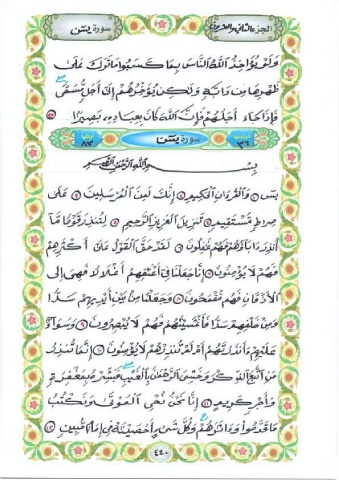 الجزء الثاني والعشرون
سورة يس
وَلَوْ يُؤَاخِذُ اللَّهُ النَّاسَ بِمَا كَسَبُوا مَا تَرَكَ عَلَىٰ
ظَهْرِهَا مِن دَابَّةٍ وَلَٰكِن يُؤَخِّرُهُمْ إِلَىٰ أَجَلٍ مُّسَمًّى
فَإِذَا جَاءَ أَجَلُهُمْ فَإِنَّ اللَّهَ كَانَ بِعِبَادِهِ بَصِيرًا ٤٥
ترتيبها ٣٦ سورة يس آياتها ٨٣
بِسْمِ اللَّهِ الرَّحْمَٰنِ الرَّحِيمِ
يس ١ وَالْقُرْءَانِ الْحَكِيمِ ٢ إِنَّكَ لَمِنَ الْمُرْسَلِينَ ٣ عَلَىٰ
صِرَاطٍ مُّسْتَقِيمٍ ٤ تَنزِيلَ الْعَزِيزِ الرَّحِيمِ ٥ لِتُنذِرَ قَوْمًا مَّا
أُنذِرَ ءَابَاؤُهُمْ فَهُمْ غَافِلُونَ ٦ لَقَدْ حَقَّ الْقَوْلُ عَلَىٰ أَكْثَرِهِمْ
فَهُمْ لَا يُؤْمِنُونَ ٧ إِنَّا جَعَلْنَا فِي أَعْنَاقِهِمْ أَغْلَالًا فَهِيَ إِلَى
الْأَذْقَانِ فَهُم مُّقْمَحُونَ ٨ وَجَعَلْنَا مِن بَيْنِ أَيْدِيهِمْ سَدًّا
وَمِنْ خَلْفِهِمْ سَدًّا فَأَغْشَيْنَاهُمْ فَهُمْ لَا يُبْصِرُونَ ٩ وَسَوَاءٌ
عَلَيْهِمْ ءَأَنذَرْتَهُمْ أَمْ لَمْ تُنذِرْهُمْ لَا يُؤْمِنُونَ ١٠ إِنَّمَا تُنذِرُ
مَنِ اتَّبَعَ الذِّكْرَ وَخَشِيَ الرَّحْمَٰنَ بِالْغَيْبِ فَبَشِّرْهُ بِمَغْفِرَةٍ
وَأَجْرٍ كَرِيمٍ ١١ إِنَّا نَحْنُ نُحْيِ الْمَوْتَىٰ وَنَكْتُبُ
مَا قَدَّمُوا وَءَاثَارَهُمْ وَكُلَّ شَيْءٍ أَحْصَيْنَاهُ فِي إِمَامٍ مُّبِينٍ ١٢
٤٤٠